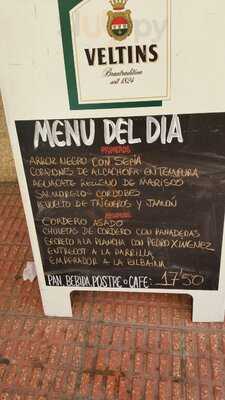 VELTINS
Brautradition
seit 1824
MENU DEL DIA
PRIMEROS
ARROZ NEGRO CON SEPIA
CORAZONES DE ALCACHOFA EN TEMPURA
AGUACATE RELLENO DE MARISCO
SALMOREJO CORDOBES
REVUELTO DE TRIGEROS Y JAMÓN
SEGUNDOS
CORDERO ASADO
CHULETAS DE CORDERO CON PANADERAS
SECRETO A LA PLANCHA CON PEDRO XIMENEZ
ENTRECOT A LA PARRILLA
EMPERADOR A LA BILBAINA
PAN, BEBIDA, POSTRE o CAFE: 17'50